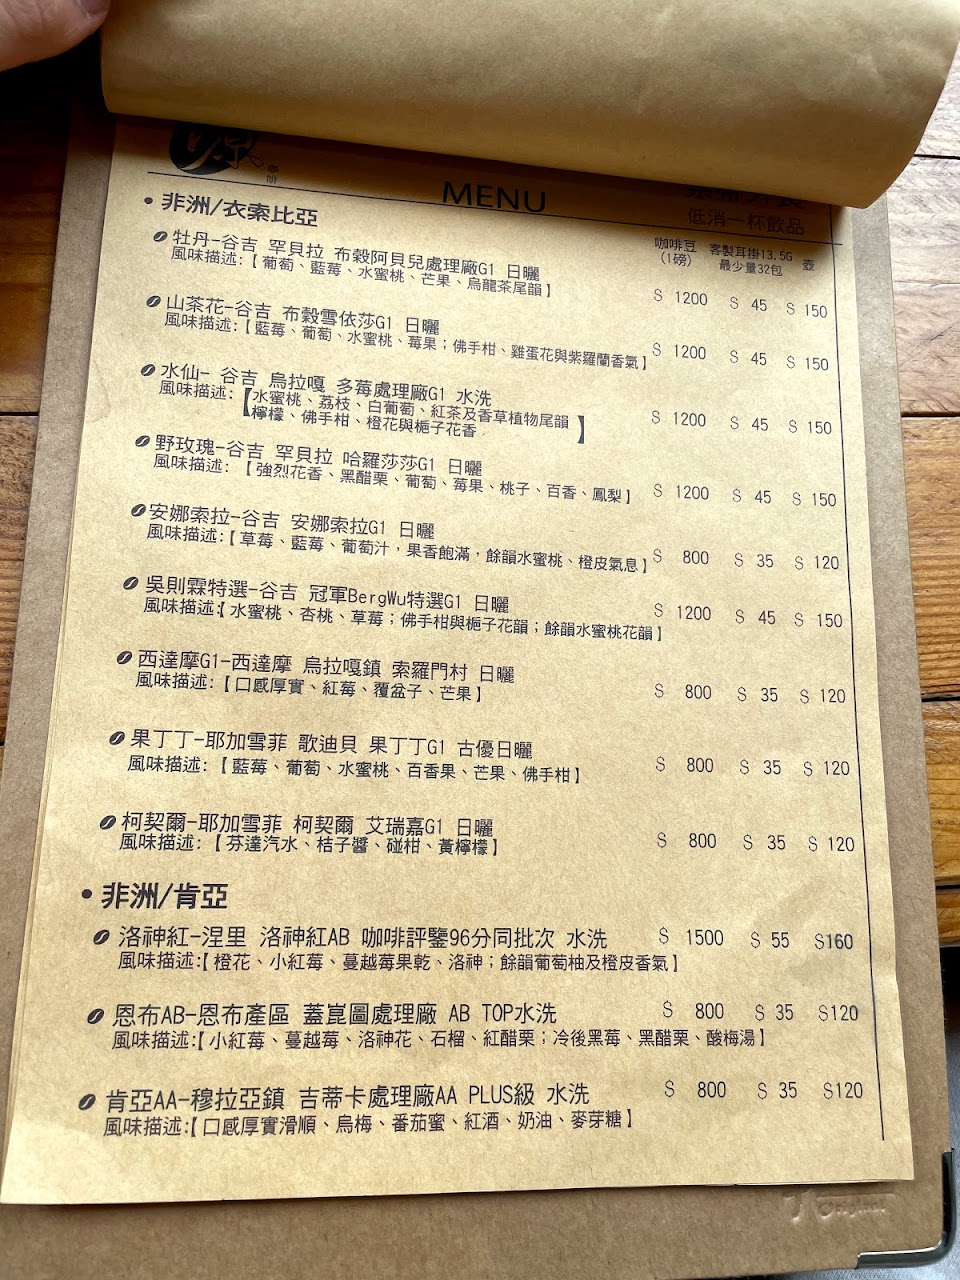 咖啡
MENU
低消一杯飲品
• 非洲/衣索比亞
咖啡豆(1磅) 客製耳掛13.5G 最少量32包 壺
牡丹-谷吉 罕貝拉 布穀阿貝兒處理廠G1 日曬
風味描述:【葡萄、藍莓、水蜜桃、芒果、烏龍茶尾韻】
$ 1200 $ 45 $ 150
山茶花-谷吉 布穀雪依莎G1 日曬
風味描述:【藍莓、葡萄、水蜜桃、莓果;佛手柑、雞蛋花與紫羅蘭香氣】
$ 1200 $ 45 $ 150
水仙- 谷吉 烏拉嘎 多莓處理廠G1 水洗
風味描述:【水蜜桃、荔枝、白葡萄、紅茶及香草植物尾韻
檸檬、佛手柑、橙花與梔子花香】
$ 1200 $ 45 $ 150
野玫瑰-谷吉 罕貝拉 哈羅莎莎G1 日曬
風味描述: 【強烈花香、黑醋栗、葡萄、莓果、桃子、百香、鳳梨】
$ 1200 $ 45 $ 150
安娜索拉-谷吉 安娜索拉G1 日曬
風味描述:【草莓、藍莓、葡萄汁，果香飽滿，餘韻水蜜桃、橙皮氣息】
$ 800 $ 35 $ 120
吳則霖特選-谷吉 冠軍BergWu特選G1 日曬
風味描述:【水蜜桃、杏桃、草莓;佛手柑與梔子花韻;餘韻水蜜桃花韻】
$ 1200 $ 45 $ 150
西達摩G1-西達摩 烏拉嘎鎮 索羅門村 日曬
風味描述:【口感厚實、紅莓、覆盆子、芒果】
$ 800 $ 35 $ 120
果丁丁-耶加雪菲 歌迪貝 果丁丁G1 古優日曬
風味描述: 【藍莓、葡萄、水蜜桃、百香果、芒果、佛手柑】
$ 800 $ 35 $ 120
柯契爾-耶加雪菲 柯契爾 艾瑞嘉G1 日曬
風味描述: 【芬達汽水、桔子醬、碰柑、黃檸檬】
$ 800 $ 35 $ 120
• 非洲/肯亞
洛神紅-涅里 洛神紅AB 咖啡評鑒96分同批次 水洗
風味描述:【橙花、小紅莓、蔓越莓果乾、洛神;餘韻葡萄柚及橙皮香氣】
$ 1500 $ 55 $160
恩布AB-恩布產區 蓋崑圖處理廠 AB TOP水洗
風味描述:【小紅莓、蔓越莓、洛神花、石榴、紅醋栗;冷後黑莓、黑醋栗、酸梅湯】
$ 800 $ 35 $120
肯亞AA-穆拉亞鎮 吉蒂卡處理廠AA PLUS級 水洗
風味描述:【口感厚實滑順、烏梅、番茄蜜、紅酒、奶油、麥芽糖】
$ 800 $ 35 $120